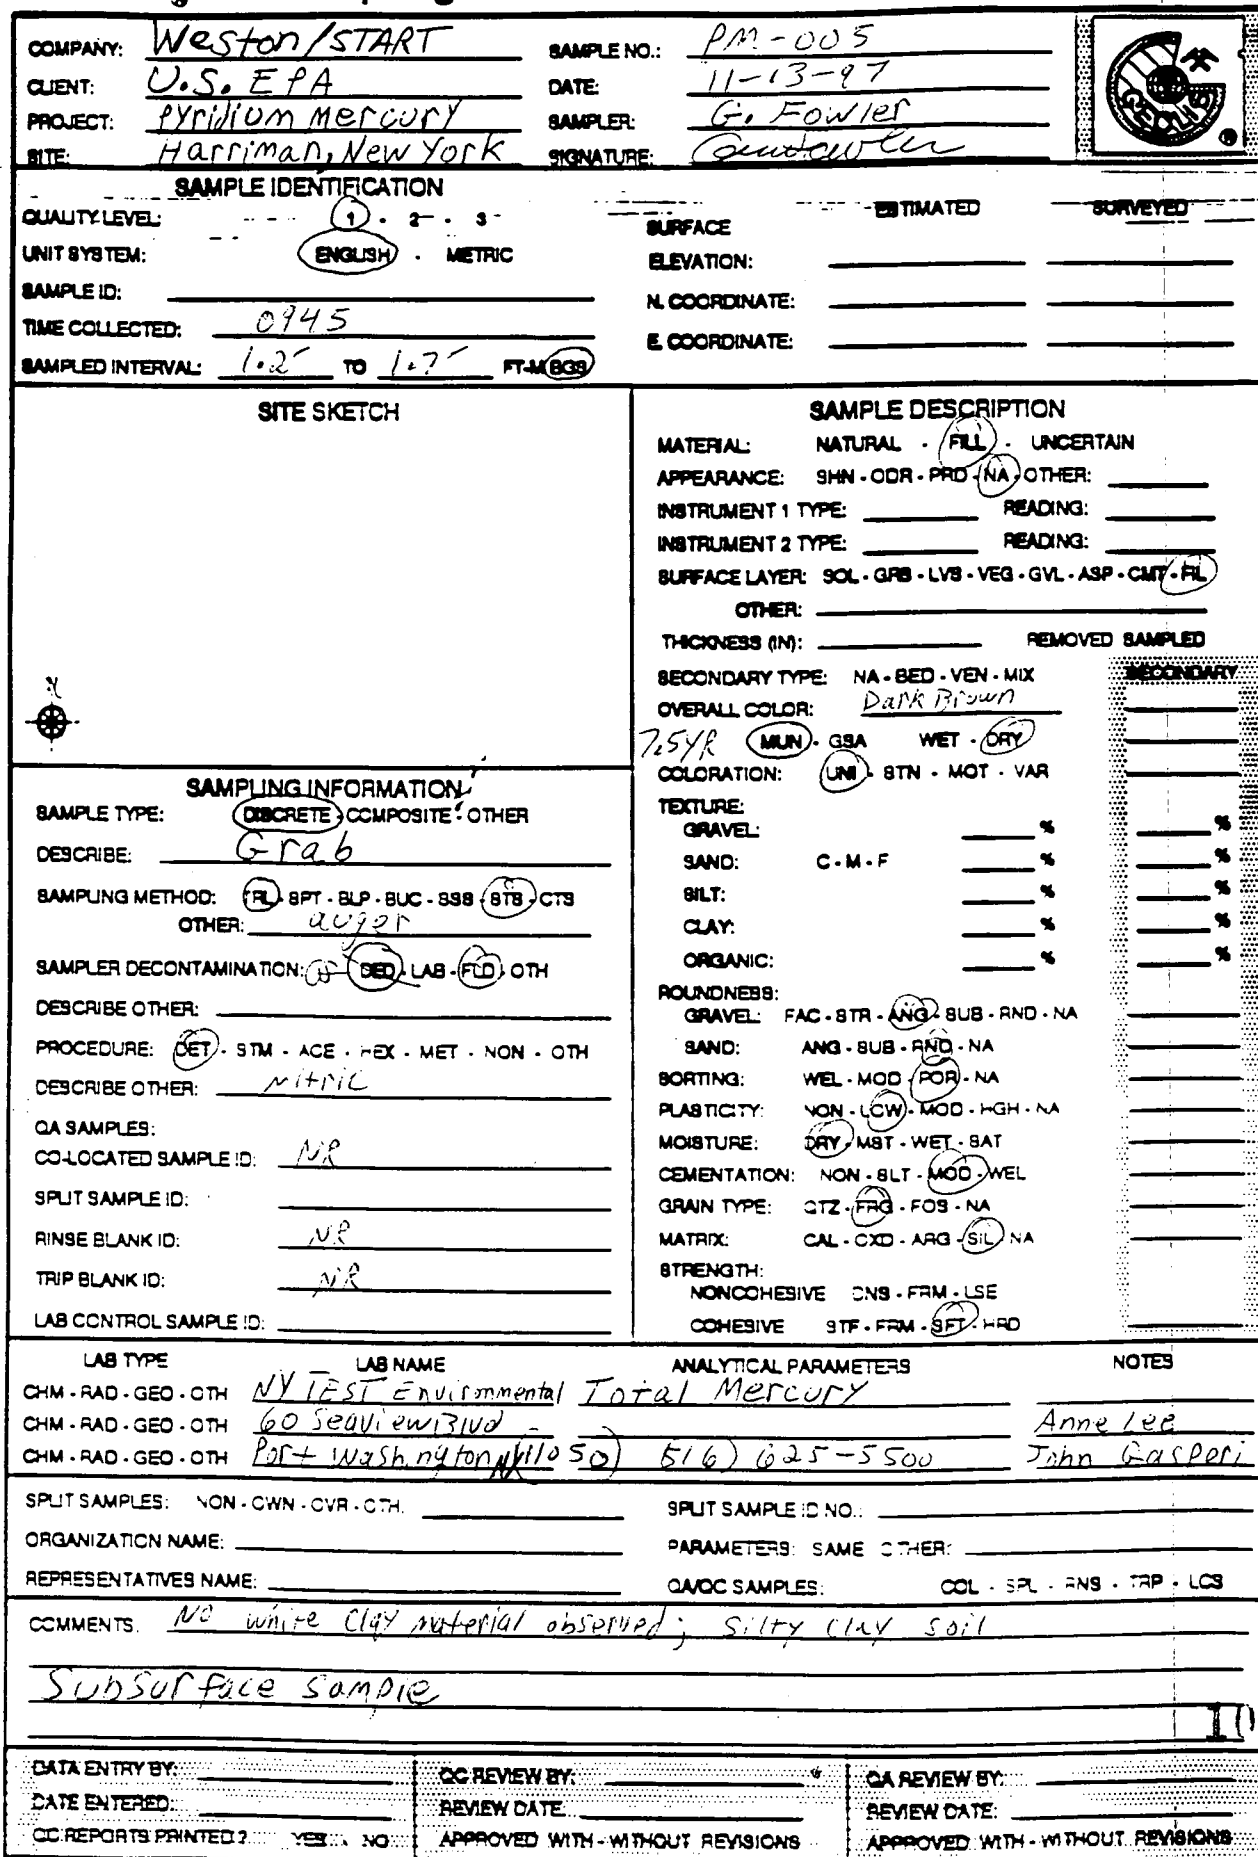 COMPANY: Weston/START SAMPLE NO.: PM-005
CLIENT: U.S. EPA DATE: 11-13-97
PROJECT: Pyridium Mercury SAMPLER: G. Fowler
SITE: Harriman, New York SIGNATURE:
GEOLIS ®
SAMPLE IDENTIFICATION
QUALITY LEVEL: 1 - 2 - 3
UNIT SYSTEM: ENGLISH - METRIC
SAMPLE ID:
TIME COLLECTED: 0945
SAMPLED INTERVAL: 1.25 TO 1.75 FT-M BGS
ESTIMATED SURVEYED
SURFACE
ELEVATION:
N. COORDINATE:
E. COORDINATE:
SITE SKETCH
N
SAMPLING INFORMATION
SAMPLE TYPE: DISCRETE - COMPOSITE - OTHER
DESCRIBE: Grab
SAMPLING METHOD: TRL - SPT - BLP - BUC - SSS - STS - CTS
OTHER: auger
SAMPLER DECONTAMINATION: GF DED - LAB - FLD - OTH
DESCRIBE OTHER:
PROCEDURE: DET - STM - ACE - HEX - MET - NON - OTH
DESCRIBE OTHER: Nitric
QA SAMPLES:
CO-LOCATED SAMPLE ID: NR
SPLIT SAMPLE ID:
RINSE BLANK ID: NR
TRIP BLANK ID: NR
LAB CONTROL SAMPLE ID:
SAMPLE DESCRIPTION
MATERIAL: NATURAL - FILL - UNCERTAIN
APPEARANCE: SHN - ODR - PRD - NA - OTHER:
INSTRUMENT 1 TYPE: READING:
INSTRUMENT 2 TYPE: READING:
SURFACE LAYER: SOL - GRS - LVS - VEG - GVL - ASP - CMT - FIL
OTHER:
THICKNESS (IN): REMOVED SAMPLED
SECONDARY TYPE: NA - BED - VEN - MIX SECONDARY
OVERALL COLOR: Dark Brown
7.5YR MUN - GSA WET - DRY
COLORATION: UNI - STN - MOT - VAR
TEXTURE:
GRAVEL: % %
SAND: C - M - F % %
SILT: % %
CLAY: % %
ORGANIC: % %
ROUNDNESS:
GRAVEL: FAC - STR - ANG - SUB - RND - NA
SAND: ANG - SUB - RND - NA
SORTING: WEL - MOD - POR - NA
PLASTICITY: NON - LOW - MOD - HGH - NA
MOISTURE: DRY - MST - WET - SAT
CEMENTATION: NON - SLT - MOD - WEL
GRAIN TYPE: QTZ - FRG - FOS - NA
MATRIX: CAL - OXD - ARG - SIL - NA
STRENGTH:
NONCOHESIVE DNS - FRM - LSE
COHESIVE STF - FRM - SFT - HRD
LAB TYPE LAB NAME ANALYTICAL PARAMETERS NOTES
CHM - RAD - GEO - OTH NY TEST Environmental Total Mercury
CHM - RAD - GEO - OTH 60 Seaview Blvd Anne Lee
CHM - RAD - GEO - OTH Port Washington NY 11050) 516) 625-5500 John Gasperi
SPLIT SAMPLES: NON - OWN - OVR - OTH: SPLIT SAMPLE ID NO.:
ORGANIZATION NAME: PARAMETERS: SAME OTHER:
REPRESENTATIVES NAME: QA/QC SAMPLES: COL - SPL - RNS - TRP - LCS
COMMENTS: No white clay material observed; Silty clay soil
Subsurface sample
10
DATA ENTRY BY: QC REVIEW BY: QA REVIEW BY:
DATE ENTERED: REVIEW DATE: REVIEW DATE:
QC REPORTS PRINTED? YES NO APPROVED WITH - WITHOUT REVISIONS APPROVED WITH - WITHOUT REVISIONS